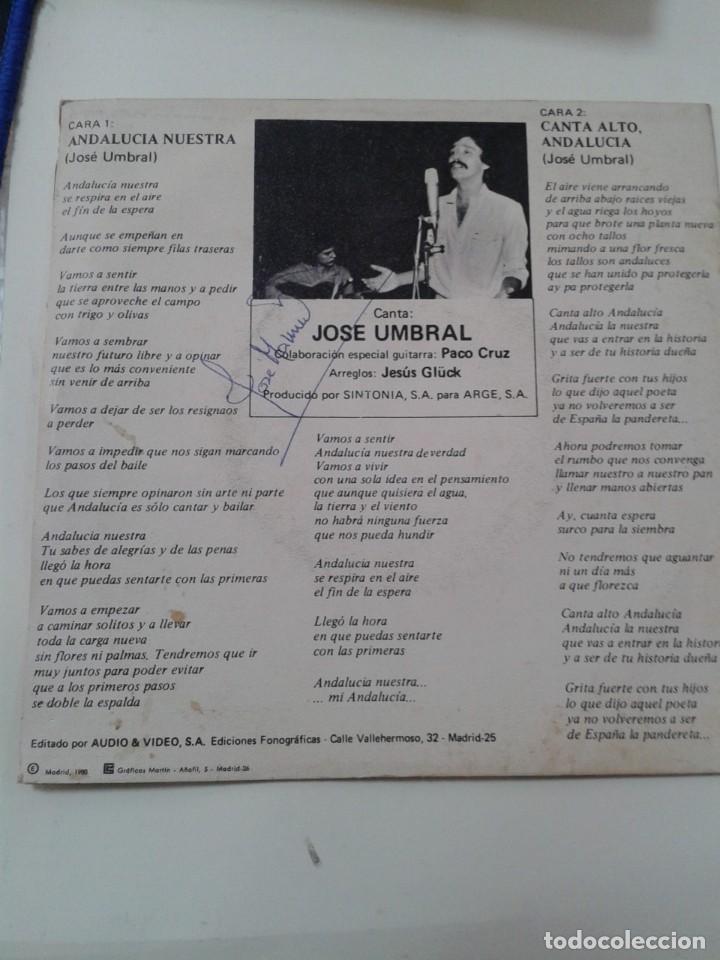 CARA 1:
ANDALUCIA NUESTRA
(José Umbral)
Andalucía nuestra
se respira en el aire
el fín de la espera
Aunque se empeñan en
darte como siempre filas traseras
Vamos a sentir
la tierra entre las manos y a pedir
que se aproveche el campo
con trigo y olivas
Vamos a sembrar
nuestro futuro libre y a opinar
que es lo más conveniente
sin venir de arriba
Vamos a dejar de ser los resignaos
a perder
Vamos a impedir que nos sigan marcando
los pasos del baile
Los que siempre opinaron sin arte ni parte
que Andalucía es sólo cantar y bailar
Andalucia nuestra
Tu sabes de alegrías y de las penas
llegó la hora
en que puedas sentarte con las primeras
Vamos a empezar
a caminar solitos y a llevar
toda la carga nueva
sin flores ni palmas. Tendremos que ir
muy juntos para poder evitar
que a los primeros pasos
se doble la espalda
Canta:
JOSE UMBRAL
Colaboración especial guitarra: Paco Cruz
Arreglos: Jesús Glück
Producido por SINTONIA, S.A. para ARGE, S.A.
Vamos a sentir
Andalucía nuestra de verdad
Vamos a vivir
con una sola idea en el pensamiento
que aunque quisiera el agua,
la tierra y el viento
no habrá ninguna fuerza
que nos pueda hundir
Andalucía nuestra
se respira en el aire
el fin de la espera
Llegó la hora
en que puedas sentarte
con las primeras
Andalucía nuestra...
... mi Andalucía...
CARA 2:
CANTA ALTO,
ANDALUCIA
(José Umbral)
El aire viene arrancando
de arriba abajo raices viejas
y el agua riega los hoyos
para que brote una planta nueva
con ocho tallos
mimando a una flor fresca
los tallos son andaluces
que se han unido pa protegerla
ay pa protegerla
Canta alto Andalucía
Andalucía la nuestra
que vas a entrar en la historia
y a ser de tu historia dueña
Grita fuerte con tus hijos
lo que dijo aquel poeta
ya no volveremos a ser
de España la pandereta...
Ahora podremos tomar
el rumbo que nos convenga
llamar nuestro a nuestro pan
y llenar manos abiertas
Ay, cuanta espera
surco para la siembra
No tendremos que aguantar
ni un día más
a que florezca
Canta alto Andalucía
Andalucía la nuestra
que vas a entrar en la historia
y a ser de tu historia dueña
Grita fuerte con tus hijos
lo que dijo aquel poeta
ya no volveremos a ser
de España la pandereta...
Editado por AUDIO & VIDEO, S.A. Ediciones Fonográficas - Calle Vallehermoso, 32 - Madrid-25
Madrid, 1980 Gráficas Martín - Añafil, 5 - Madrid-26
todocoleccion
todocoleccion.net